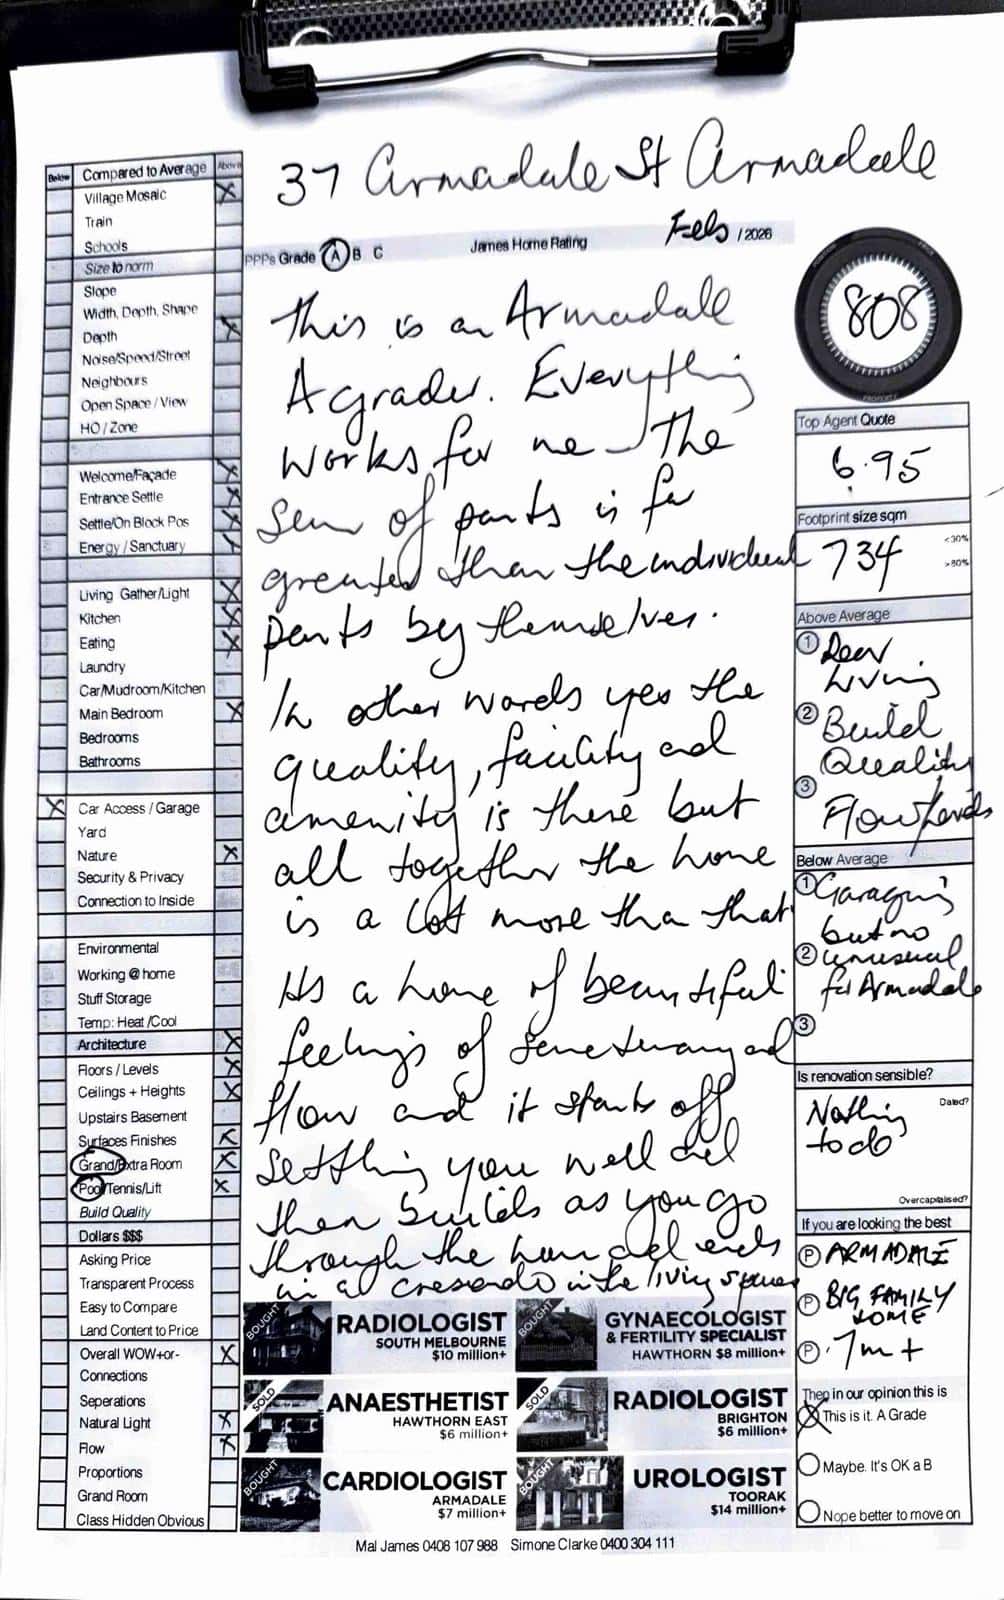 37 Armadale St Armadale
Below Compared to Average Above
Village Mosaic X
Train
Schools
Size to norm
Slope
Width, Depth, Shape
Depth X
Noise/Speed/Street
Neighbours
Open Space / View
HO / Zone
Welcome/Façade X
Entrance Settle X
Settle/On Block Pos X
Energy / Sanctuary X
Living Gather/Light X
Kitchen X
Eating X
Laundry
Car/Mudroom/Kitchen
Main Bedroom X
Bedrooms
Bathrooms
X Car Access / Garage
Yard
Nature X
Security & Privacy
Connection to Inside
Environmental
Working @ home
Stuff Storage
Temp: Heat /Cool
Architecture X
Floors / Levels X
Ceilings + Heights X
Upstairs Basement
Surfaces Finishes X
Grand/Extra Room X
Pool/Tennis/Lift X
Build Quality
Dollars $$$
Asking Price
Transparent Process
Easy to Compare
Land Content to Price
Overall WOW+or- X
Connections
Seperations
Natural Light X
Flow X
Proportions
Grand Room
Class Hidden Obvious
PPPs Grade A B C James Home Rating Feb / 2026
This is an Armadale
A grader. Everything
works for me - The
sum of parts is far
greater than the individual
parts by themselves.
In other words yes the
quality, facility and
amenity is there but
all together the home
is a lot more tha that
Its a home of beautiful
feelings of sanctuary and
flow and it starts off
settling you well and
then builds as you go
through the home and ends
in a crescendo in the living spaces
808
PROPERTY
Top Agent Quote
6.95
Footprint size sqm
734 <30%
>80%
Above Average
1 Rear
Living
2 Build
Quality
3 Flow/Levels
Below Average
1 Garaging
but no
2 unusual
for Armadale
3
Is renovation sensible?
Nothing Dated?
to do
Overcapitalised?
If you are looking the best
P ARMADALE
P BIG FAMILY
HOME
P 7m +
Then in our opinion this is
X This is it. A Grade
Maybe. It's OK a B
Nope better to move on
BOUGHT RADIOLOGIST
SOUTH MELBOURNE
$10 million+
BOUGHT GYNAECOLOGIST
& FERTILITY SPECIALIST
HAWTHORN $8 million+
SOLD ANAESTHETIST
HAWTHORN EAST
$6 million+
SOLD RADIOLOGIST
BRIGHTON
$6 million+
BOUGHT CARDIOLOGIST
ARMADALE
$7 million+
BOUGHT UROLOGIST
TOORAK
$14 million+
Mal James 0408 107 988 Simone Clarke 0400 304 111